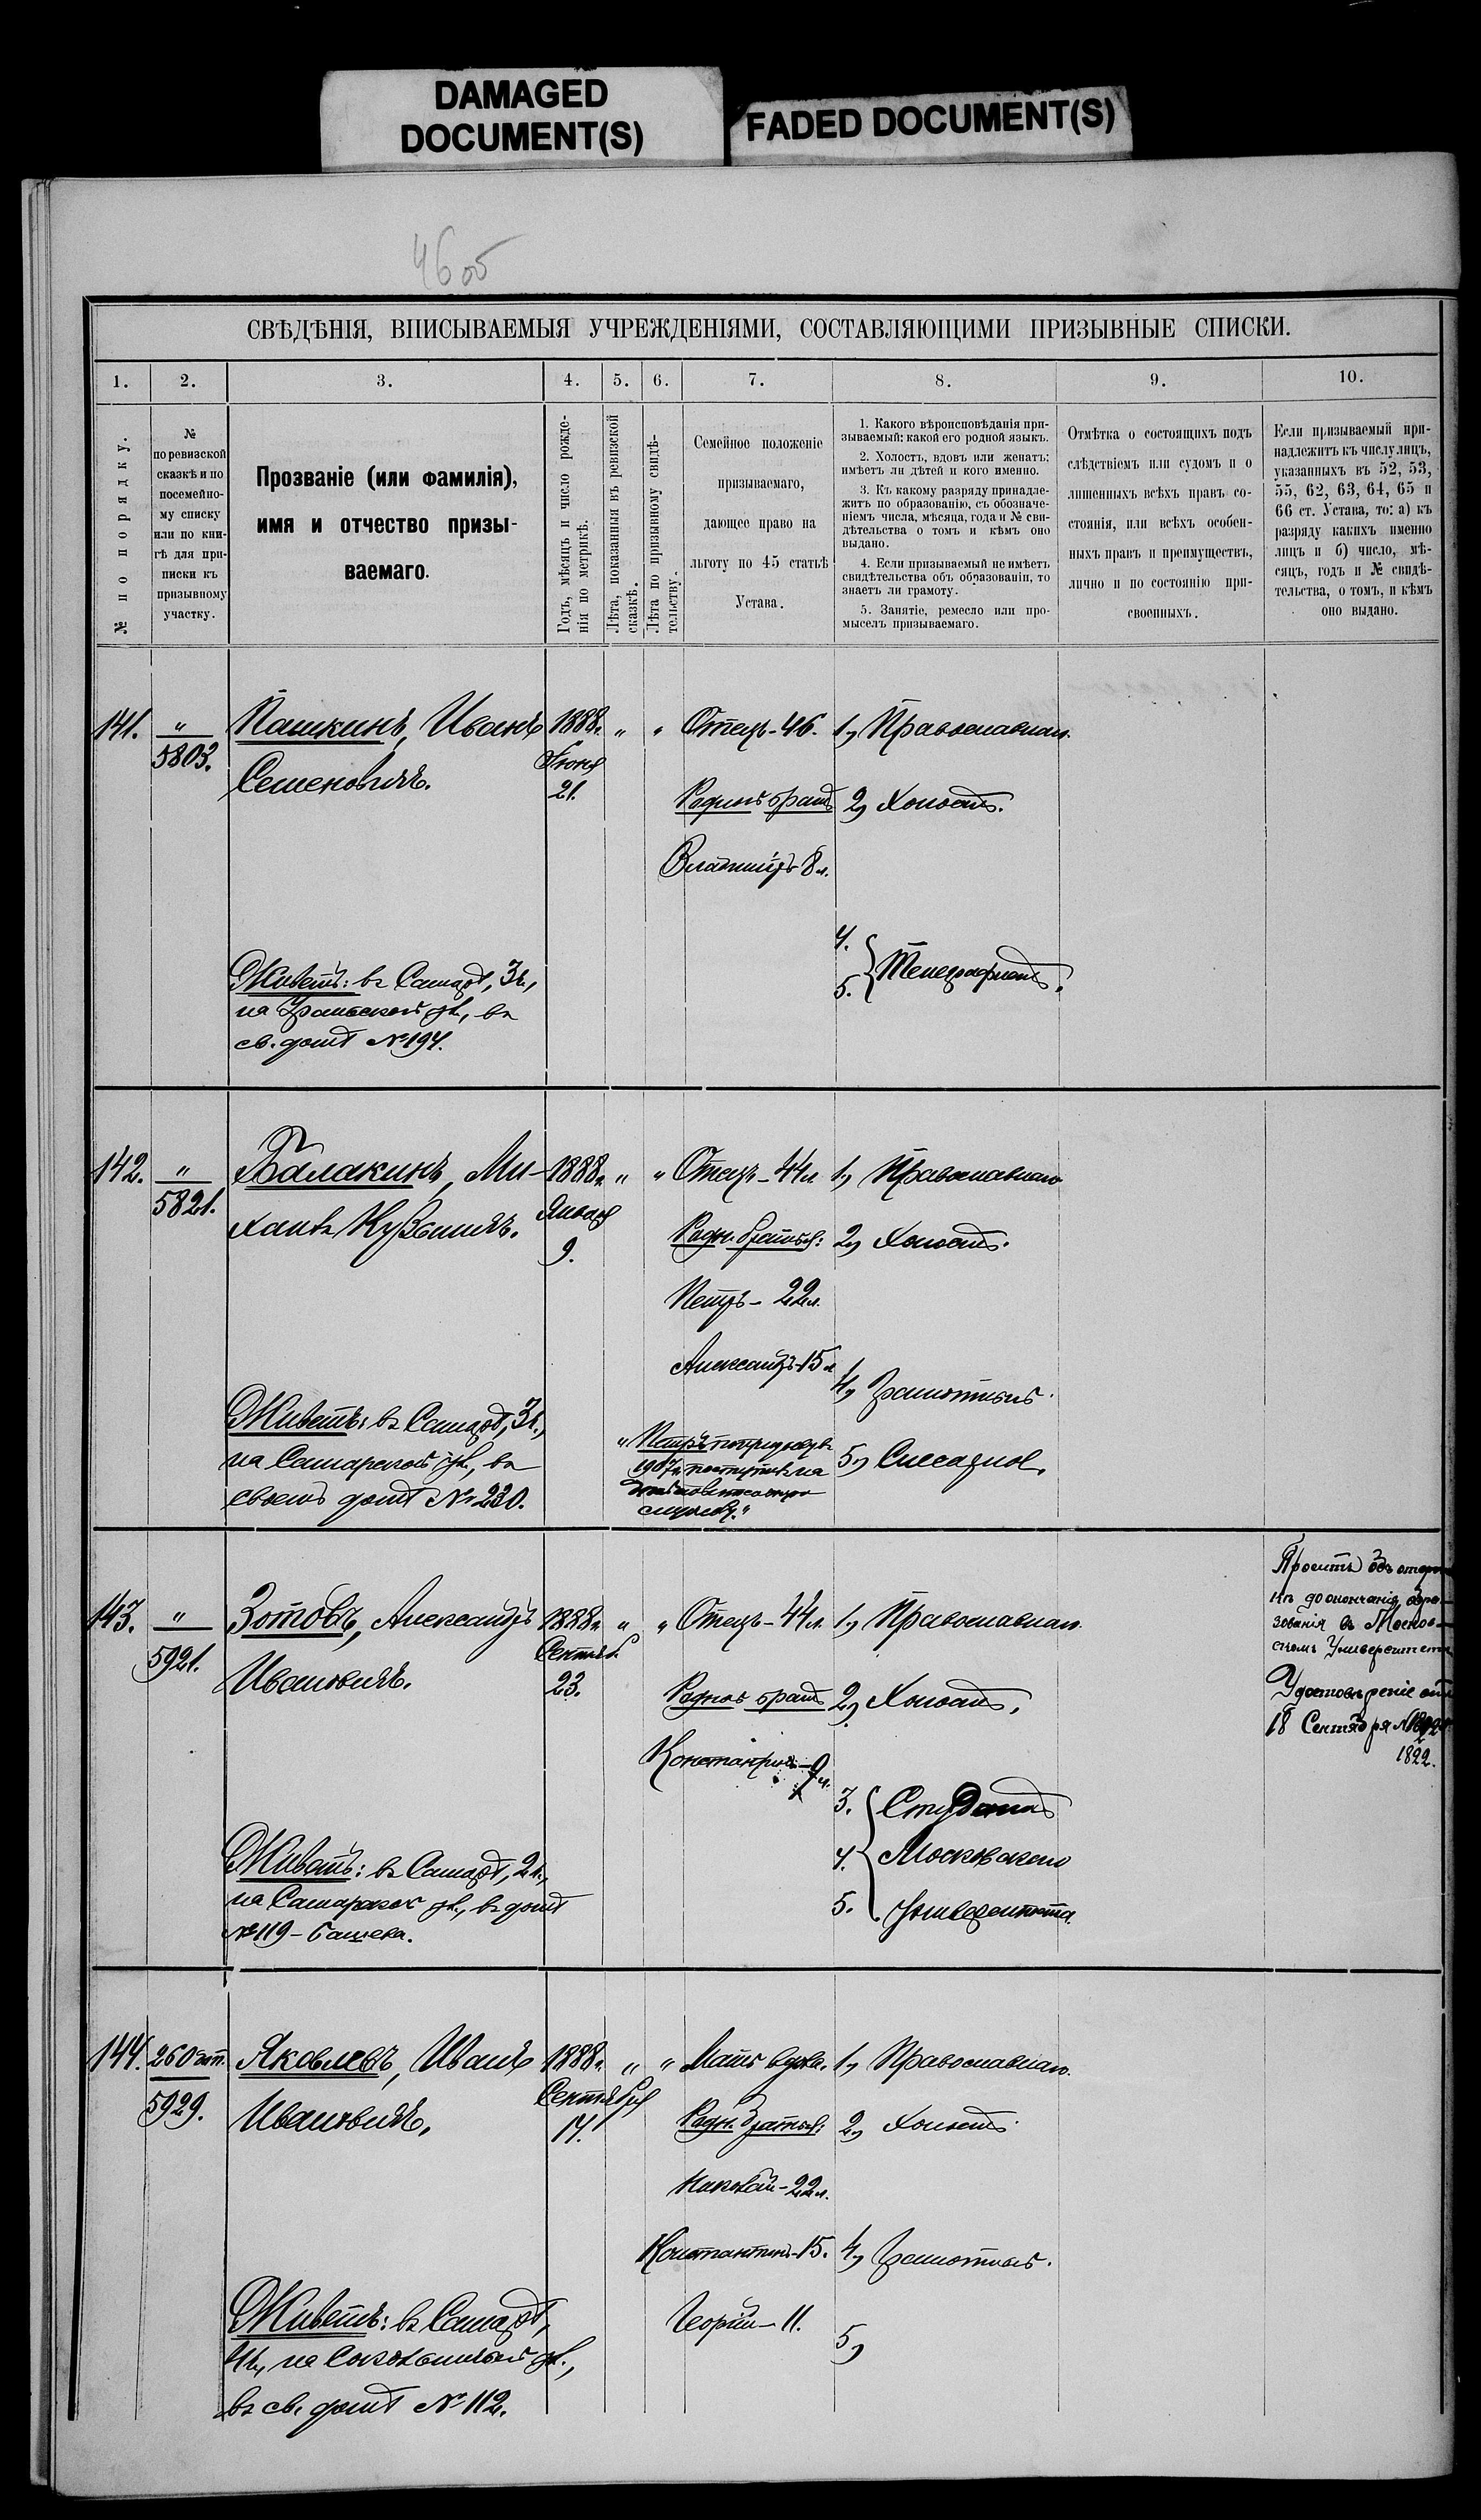 DAMAGED
DOCUMENT(S)
FADED DOCUMENT(S)
46 об
СВѢДѢНІЯ, ВПИСЫВАЕМЫЯ УЧРЕЖДЕНІЯМИ, СОСТАВЛЯЮЩИМИ ПРИЗЫВНЫЕ СПИСКИ.
1. 2. 3. 4. 5. 6. 7. 8. 9. 10.
№ по порядку.
№
по ревизской
сказкѣ и по
посемейно-
му списку
или по кни-
гѣ для при-
писки къ
призывному
участку.
Прозваніе (или фамилія),
имя и отчество призы-
ваемаго.
Годъ, мѣсяцъ и число рожде-
нія по метрикѣ.
Лѣта, показанныя въ ревизской
сказкѣ.
Лѣта по призывному свидѣ-
тельству.
Семейное положеніе
призываемаго,
дающее право на
льготу по 45 статьѣ
Устава.
1. Какого вѣроисповѣданія при-
зываемый: какой его родной языкъ.
2. Холостъ, вдовъ или женатъ;
имѣетъ ли дѣтей и кого именно.
3. Къ какому разряду принадле-
житъ по образованію, съ обозначе-
ніемъ числа, мѣсяца, года и № сви-
дѣтельства о томъ и кѣмъ оно
выдано.
4. Если призываемый не имѣетъ
свидѣтельства объ образованіи, то
знаетъ ли грамоту.
5. Занятіе, ремесло или про-
мыселъ призываемаго.
Отмѣтка о состоящихъ подъ
слѣдствіемъ или судомъ и о
лишенныхъ всѣхъ правъ со-
стоянія, или всѣхъ особен-
ныхъ правъ и преимуществъ,
лично и по состоянію при-
своенныхъ.
Если призываемый при-
надлежитъ къ числу лицъ,
указанныхъ въ 52, 53,
55, 62, 63, 64, 65 и
66 ст. Устава, то: а) къ
разряду какихъ именно
лицъ и б) число, мѣ-
сяцъ, годъ и № свидѣ-
тельства, о томъ, и кѣмъ
оно выдано.
141. "
5803.
Пашкинъ, Иванъ
Семеновичъ.
1888г.
Іюня
21.
" "
Отецъ-46.
Родной братъ
Владиміръ 8л.
1, Православнаго.
2, Холостъ.
4.
5. Телеграфистъ.
Живетъ: въ Самарѣ, 3ч.,
на Уральской ул., въ
св. домѣ №194.
142. "
5821.
Балакинъ, Ми-
хаилъ Кузьмичъ.
1888г.
Января
9.
" "
Отецъ-44л.
Родн. братья:
Петръ-22л.
Александръ-15л
"Петръ по призыву
1907г. поступилъ на
службу."
1, Православнаго
2, Холостъ.
4, Грамотный.
5, Слесарное.
Живетъ: въ Самарѣ, 3ч.,
на Самарской ул., въ
своемъ домѣ № 230.
143. "
5921.
Зотовъ, Александръ
Ивановичъ.
1888г.
Сентяб.
23.
" "
Отецъ-44л.
Родной братъ
Константинъ-9л.
1, Православнаго.
2, Холостъ.
3. Студентъ
4. Московскаго
5. Университета.
Проситъ объ отсроч
кѣ до окончанія обра-
зованія въ Москов-
скомъ Университетѣ
Удостовѣреніе отъ
18 Сентября
1822.
Живетъ: въ Самарѣ, 2ч.,
на Самарской ул., въ домѣ
№119-Башева.
144. 260 зап.
5929.
Яковлевъ, Иванъ
Ивановичъ.
1888г.
Сентября
14.
" "
Мать вдова.
Родн. братья:
Николай-22л.
Константинъ-15.
Георгій-11.
1, Православнаго.
2, Холостъ
4, Грамотный.
5,
Живетъ: въ Самарѣ,
4ч., на Сокольничьей ул.,
въ св. домѣ № 112.